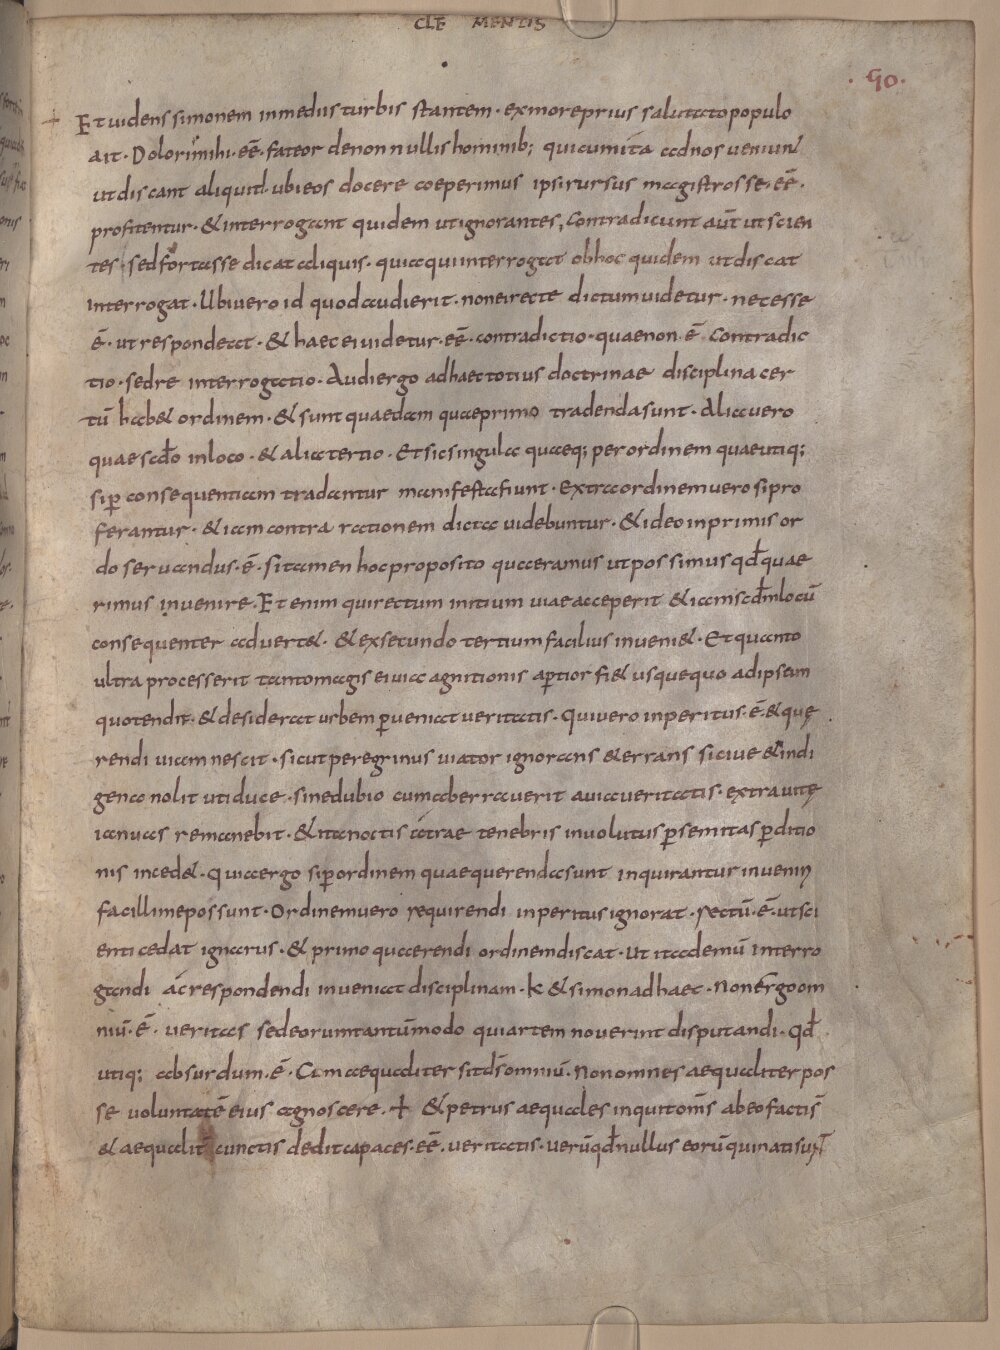 CLE MENTIS
· 90 ·
Et uidens simonem inmediis turbis stantem · exmore prius salutato populo
ait · Dolori mihi · eē · fateor denonnullis hominib; qui cum ita ad nos ueniunt
ut discant aliquid · ubi eos docere coeperimus ipsi rursus magistros se · eē ·
profitentur · & interrogant quidem ut ignorantes, contradicunt aūt ut scien
tes · sed fortasse dicat aliquis · quia qui interrogat ob hoc quidem ut discat
interrogat · Ubi uero id quod audierit · non ei recte dictum uidetur · necesse
ē · ut respondeat · & haec ei uidetur · eē · contradictio · quae non · ē · contradic
tio · sed re interrogatio · Audi ergo ad haec totius doctrinae disciplina cer
tū hab& ordinem · & sunt quaedam quae primo tradenda sunt · Alia uero
quae scdo in loco · & alia tertio · Et sic singula quaeq; per ordinem quae utiq;
si p̄ consequentiam tradantur manifesta fiunt · Extra ordinem uero si pro
ferantur · & iam contra rationem dicta uidebuntur · & ideo in primis or
do seruandus · ē · si tamen hoc proposito quaeramus ut possimus qđ quae
rimus inuenire · Et enim qui rectum initium uiae acceperit & iam scđm locū
consequenter aduert& · & ex secundo tertium facilius inueni& · Et quanto
ultra processerit tanto magis ei uia agnitionis aptior fi& usquequo ad ipsam
quo tendit · & desiderat urbem p̄ueniat ueritatis · Qui uero inperitus · ē · & quę
rendi uiam nescit · sicut peregrinus uiator ignorans & errans siciue & indi
gena nolit uti duce · sine dubio cum aberrauerit a uia ueritatis · extra uitę
ianuas remanebit · & ita noctis atrae tenebris inuolutus p̄ semitas p̄ditio
nis inced& · Quia ergo si p̄ ordinem quae querenda sunt inquirantur inueniri
facillime possunt · Ordinem uero requirendi inperitus ignorat · rectū · ē · ut sci
enti cedat ignarus · & primo quaerendi ordinem discat · ut ita demū interro
gandi ac respondendi inueniat disciplinam · K & simon ad haec · Non ergo om
niū · ē · ueritas sed eorum tantūmodo qui artem nouerint disputandi · qđ
utiq; absurdum · ē · Cum aequaliter sit dš omniū · Non omnes aequaliter pos
se uoluntatē eius agnoscere · ✝ & petrus aequales inquit omš ab eo factiš
& aequalit̄ cunctis dedit capaces · eē · ueritatis · uerū qđ nullus eorū qui nati sunt